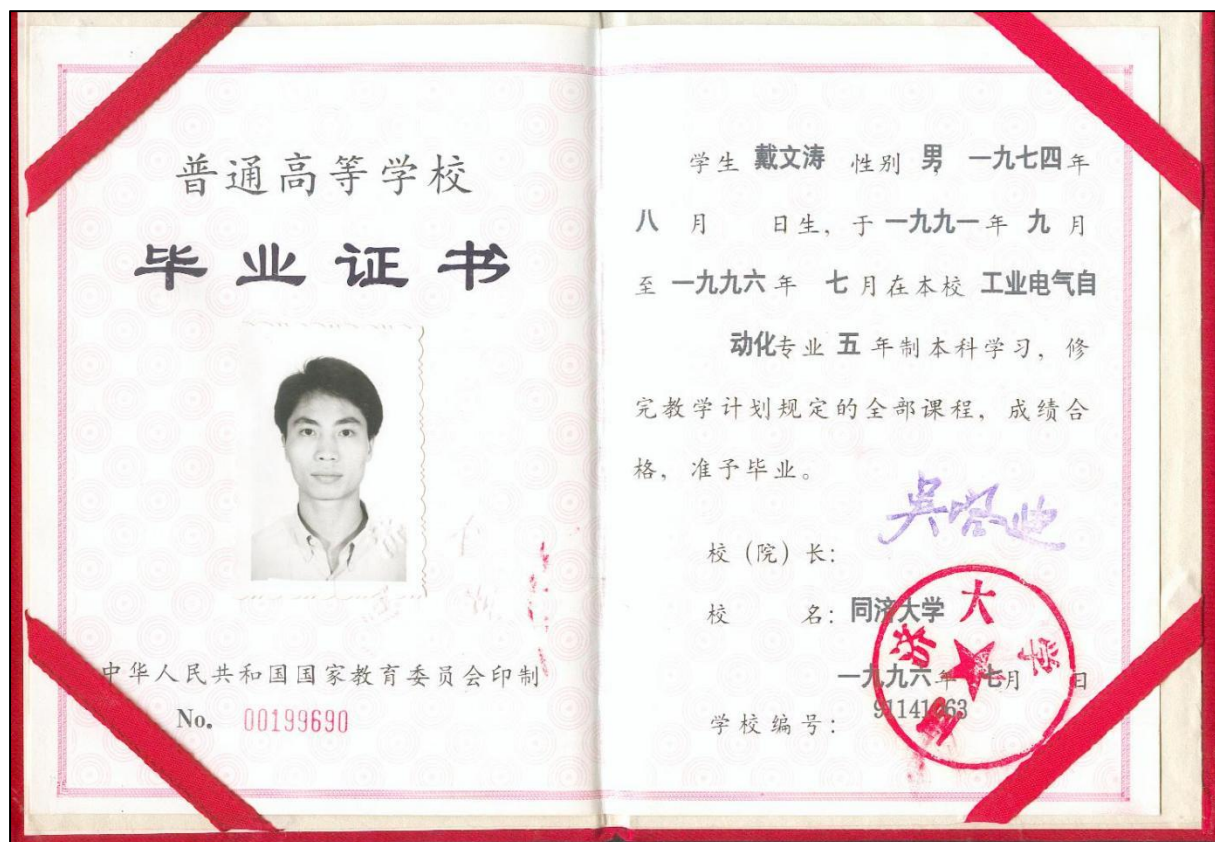 普通高等学校
毕业证书
中华人民共和国国家教育委员会印制
No. 00199690
学生 戴文涛 性别 男 一九七四年
八 月 日生, 于 一九九一年 九 月
至 一九九六年 七月在本校 工业电气自
动化专业 五 年制本科学习, 修
完教学计划规定的全部课程, 成绩合
格, 准予毕业。
吴启迪
校 (院) 长:
校 名: 同济大学
一九九六年 七月 日
学校编号:
同济大学